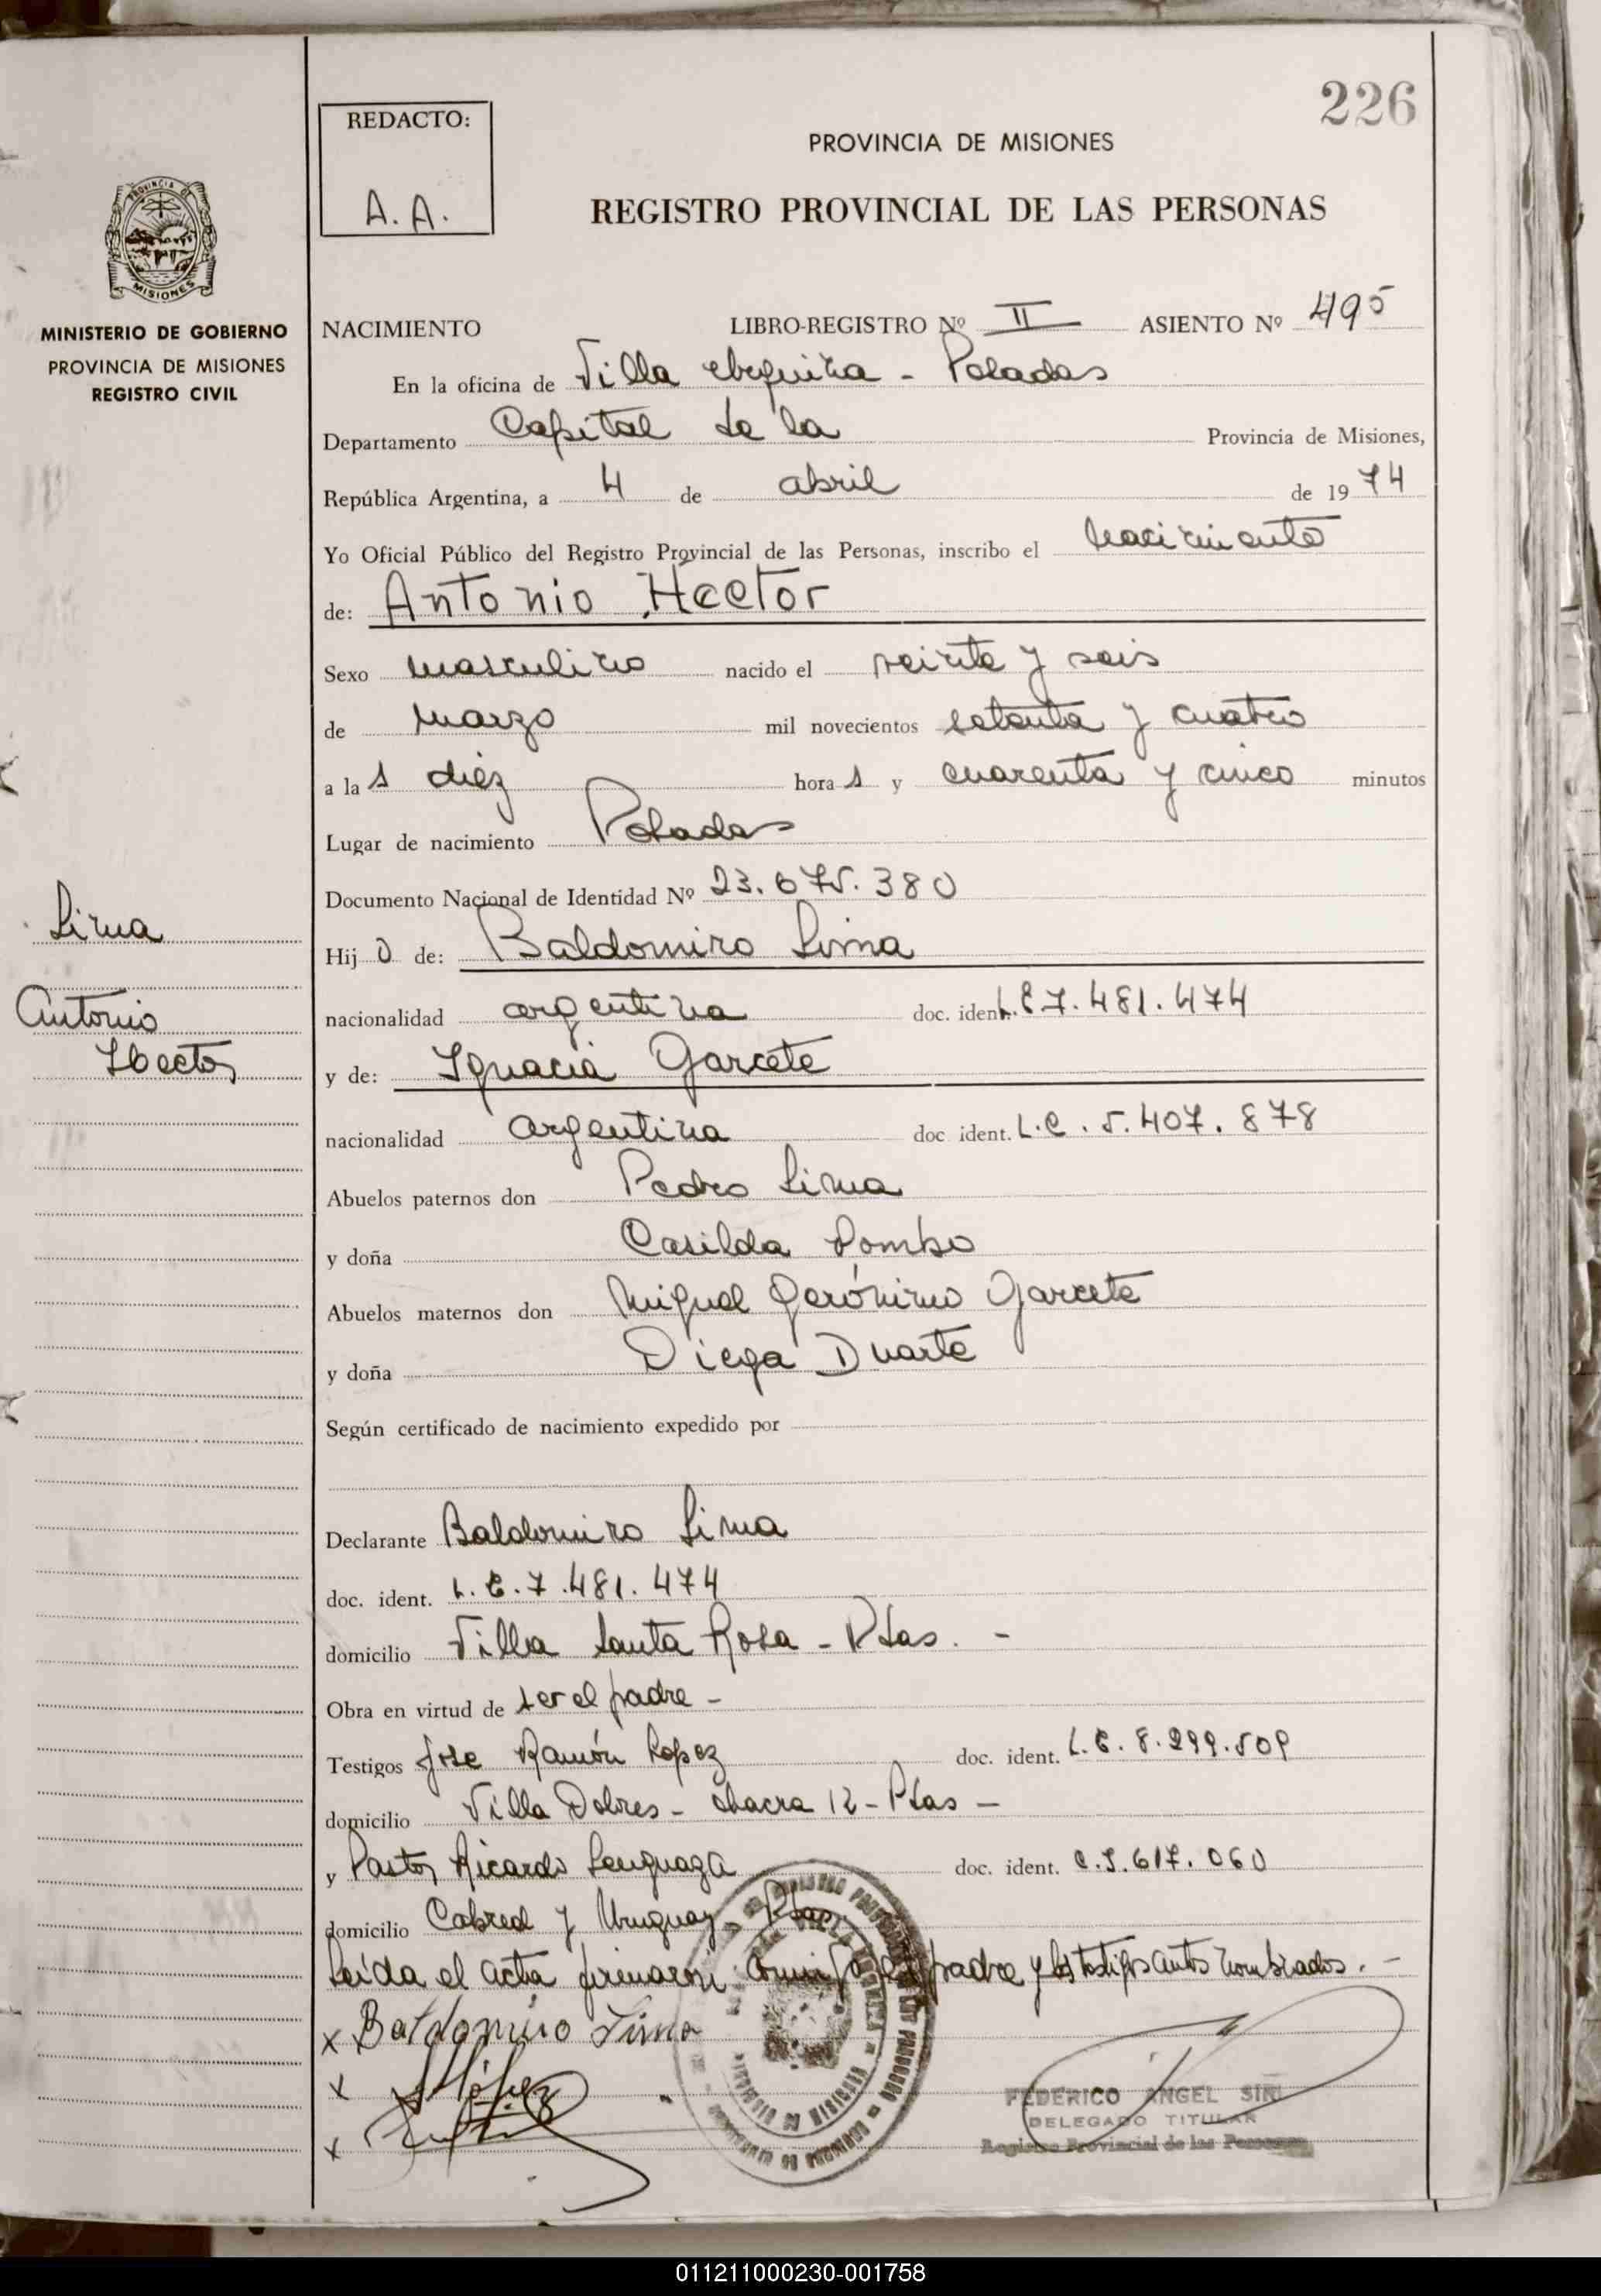 226
REDACTO:
A. A.
PROVINCIA DE MISIONES
REGISTRO PROVINCIAL DE LAS PERSONAS
PROVINCIA DE
MISIONES
MINISTERIO DE GOBIERNO
PROVINCIA DE MISIONES
REGISTRO CIVIL
NACIMIENTO LIBRO-REGISTRO Nº II ASIENTO Nº 495
En la oficina de Villa - Posadas
Departamento Capital de la Provincia de Misiones,
República Argentina, a 4 de abril de 1974
Yo Oficial Público del Registro Provincial de las Personas, inscribo el nacimiento
de: Antonio Hector
Sexo masculino nacido el veinte y seis
de marzo mil novecientos setenta y cuatro
a las diez horas y cuarenta y cinco minutos
Lugar de nacimiento Posadas
Documento Nacional de Identidad Nº 23.675.380
Hijo de: Baldomiro Lima
nacionalidad argentina doc. ident. L.E 7.481.474
y de: Ignacia Garcete
nacionalidad argentina doc. ident. L.C. 5.407.878
Abuelos paternos don Pedro Lima
y doña Casilda Pombo
Abuelos maternos don Miguel Gerónimo Garcete
y doña Diega Duarte
Según certificado de nacimiento expedido por
Declarante Baldomiro Lima
doc. ident. L.E.7.481.474
domicilio Villa Santa Rosa - Psas. -
Obra en virtud de ser el padre -
Testigos Jose Ramón Lopez doc. ident. L.E. 8.299.509
domicilio Villa Dolores - chacra 12 - Psas -
y Pastor Ricardo doc. ident. C.I. 617.060
domicilio Cabred y Uruguay - Psas
Leída el acta firmaron conmigo el padre y los testigos antes nombrados. -
x Baldomiro Lima
x
x
FEDERICO ANGEL SIRI
DELEGADO TITULAR
Registro Provincial de las Personas
Lima
Antonio
Hector
011211000230-001758